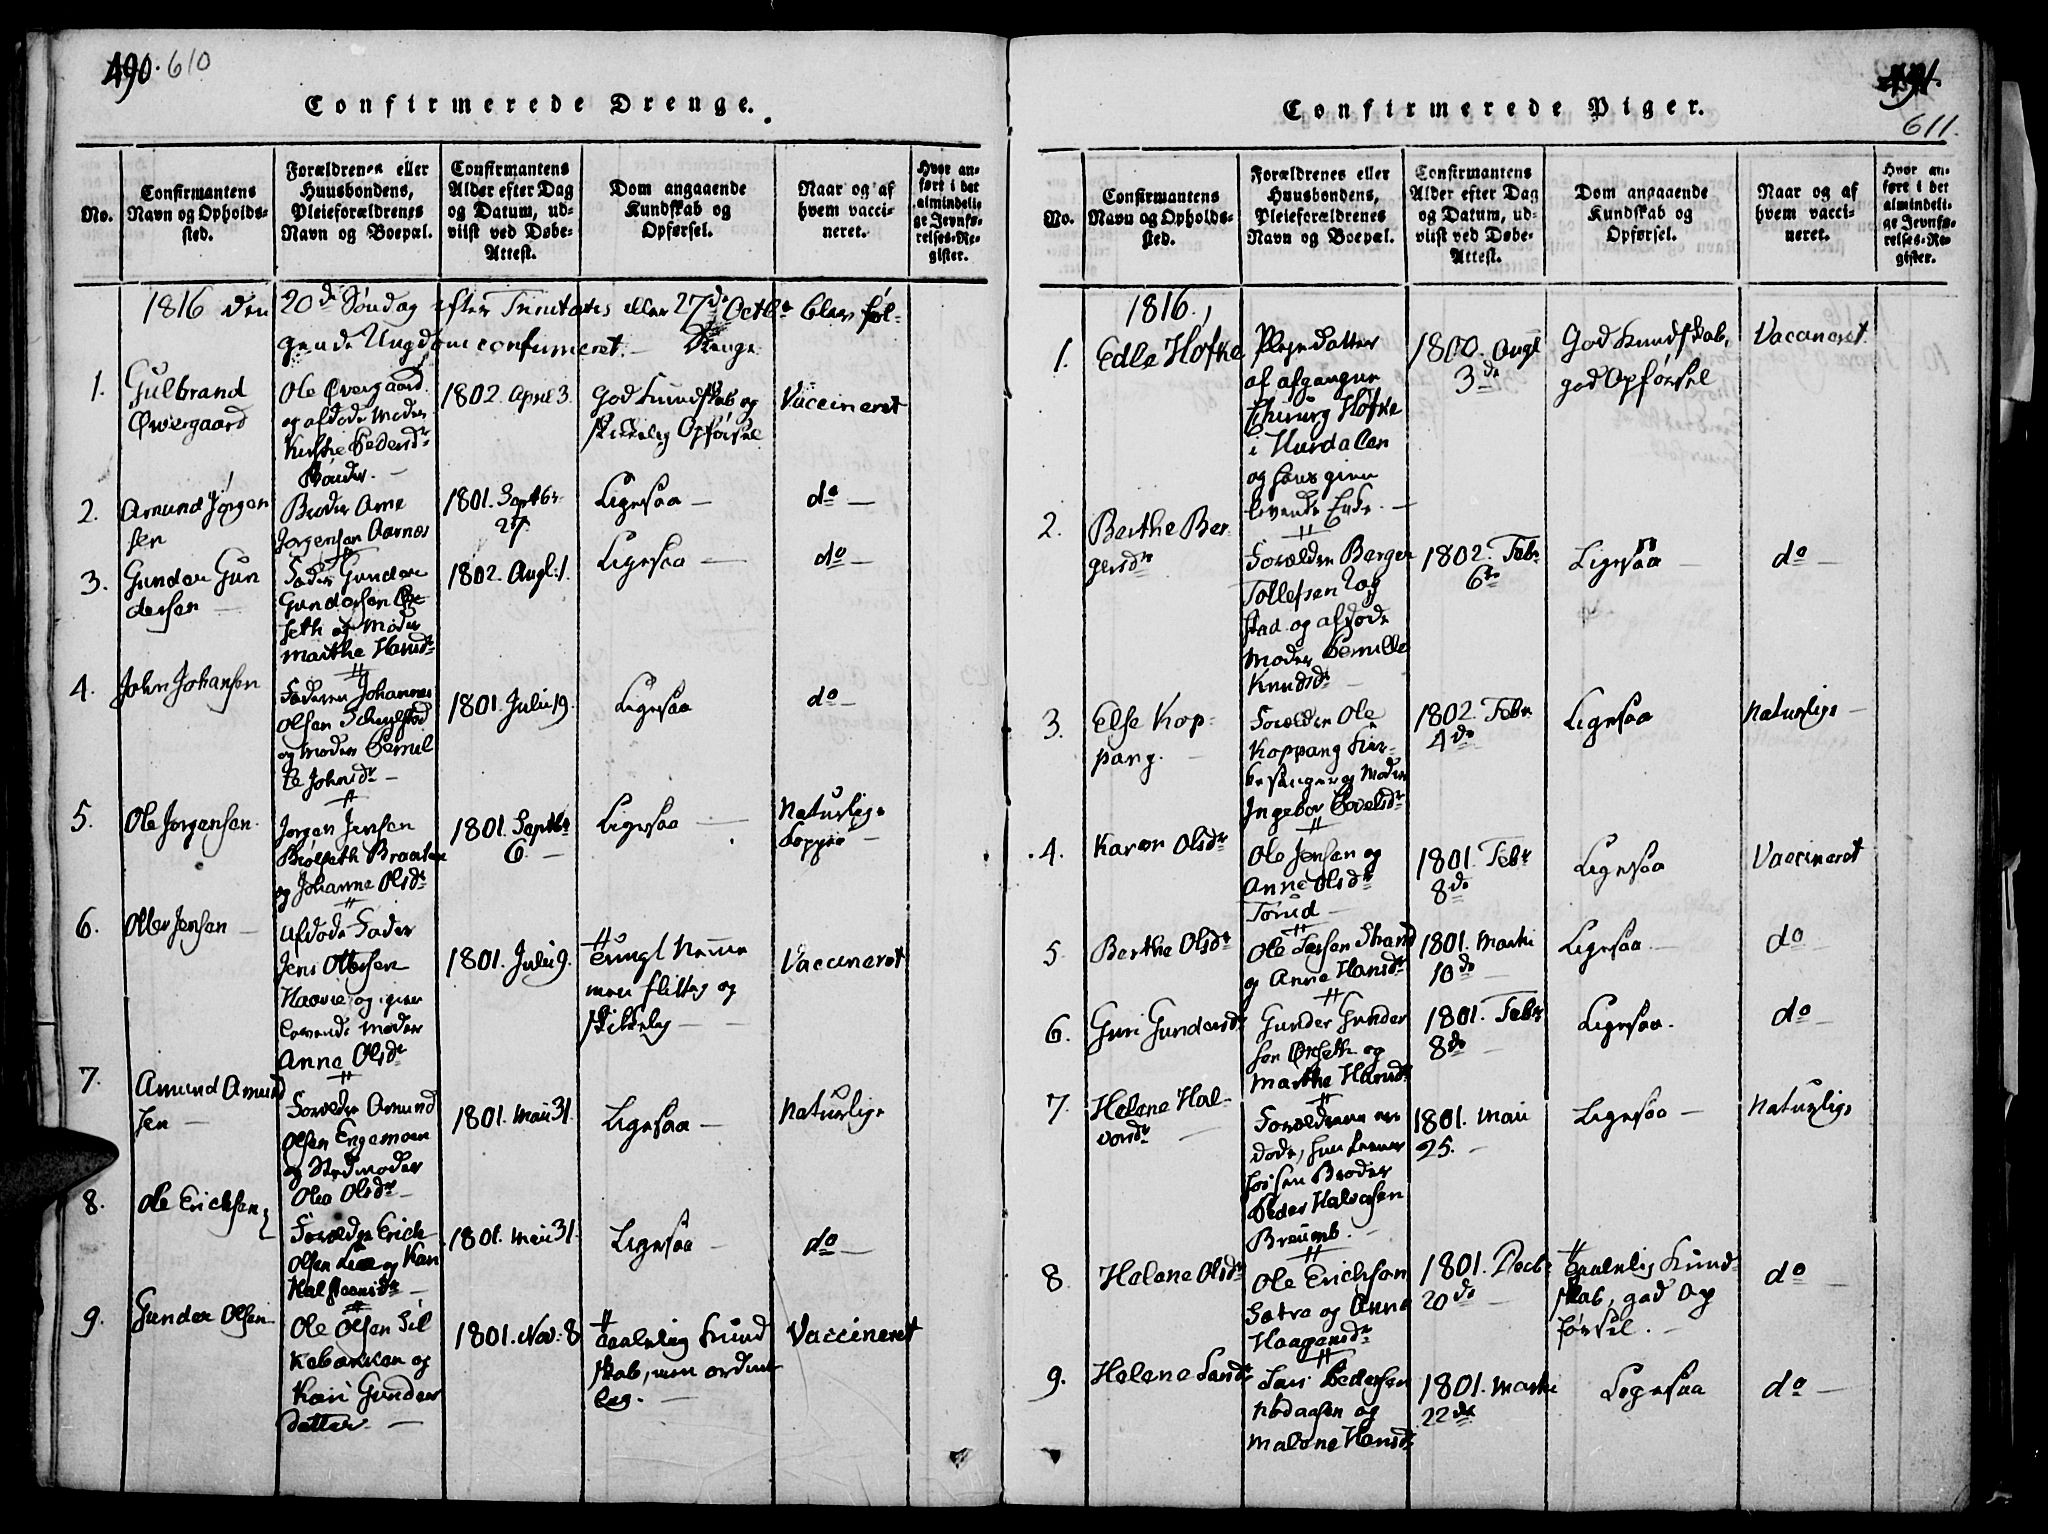 490. 610
Confirmerede Drenge.
No.
Confirmantens
Navn og Opholds-
sted.
Forældrenes eller
Huusbondens,
Pleieforældrenes
Navn og Boepæl.
Confirmantens
Alder efter Dag
og Datum, ud-
viist ved Døbe-
Attest.
Dom angaaende
Kundskab og
Opførsel.
Naar og af
hvem vacci-
neret.
Hvor an-
ført i det
almindeli-
ge Jevnfø-
relses-Re-
gister.
1816 den 20de Søndag efter Trinitatis eller 27de Octbr blev føl-
gende Ungdom confirmeret. Drenge
1.
Gulbrand
Øvergaard
Ole Øvergaard
og afdøde Moder
Kirstie Pedersdr
Bønder.
1802. April 3.
God Kundskab og
skikkelig Opførsel
Vaccineret
2.
Amund Jørgen
sen
Broder Arne
Jørgensen Aarnæs
1801. Septbr
27.
Ligesaa
do
3.
Gunder Gun
dersen
Fader Gunder
Gundersen
seth og Moder
Marthe Hansdr
1802. Augl: 1.
Ligesaa
do
4.
John Johansen
Faderen Johannes
Olsen
og Moder Pernil
le Johnsdr
1801. Julii 9.
Ligesaa
do
5.
Ole Jørgensen
Jørgen Jensen
Braaten
og Johanne Olsdr
1801. Septbr
6.
Ligesaa
Naturlige
Kopper
6.
Otter Jensen
Afdøde Fader
Jens Ottersen
Haavie og igien
levende Moder
Anne Olsdr
1801. Julii 9.
tungt Nemme
men flittig og
skikkelig
Vaccineret
7.
Amund Amund
sen
Forælder Amund
Olsen Engemoen
og Stedmoder
Olea Olsdr
1801. Maii 31.
Ligesaa
Naturlige
8.
Ole Erichsen
Forælder Erich
Olsen Lie og Kari
Halstensdr
1801. Maii 31.
Ligesaa
do
9.
Gunder Olsen
Ole Olsen Sil
kebækken og
Kari Gunders
datter.
1801. Nov. 8
taalelig Kund
skab, men ordent
lig.
Vaccineret
491.
611.
Confirmerede Piger.
No.
Confirmantens
Navn og Opholds-
sted.
Forældrenes eller
Huusbondens,
Pleieforældrenes
Navn og Boepæl.
Confirmantens
Alder efter Dag
og Datum, ud-
viist ved Døbe-
Attest.
Dom angaaende
Kundskab og
Opførsel.
Naar og af
hvem vacci-
neret.
Hvor an-
ført i det
almindeli-
ge Jevnfø-
relses-Re-
gister.
1816.
1.
Edle Hofke
Plejedatter
af afgangne
Chirurg Hofke
i Hurdalen
og hans gien
levende Enke.
1800. Augl
3de
God Kundskab,
god Opførsel
Vaccineret
2.
Berthe Ber
gersdr
Forælder Berger
Tollefsen Rog
stad og afdøde
Moder Pernille
Knudsdr
1802. Febr
6te
Ligesaa
do
3.
Else Kop-
pang.
Forælder Ole
Koppang Kir-
kesanger og Moder
Ingebor Povelsdr
1802. Febr
4de
Ligesaa
Naturlige
4.
Karen Olsdr
Ole Jensen og
Anne Olsdr
Torud
1801. Febr
8de
Ligesaa
Vaccineret
5.
Berthe Olsdr
Ole Larsen Strand
og Anne Hansdr
1801. Martii
10de
Ligesaa
do
6.
Guri Gundersdr
Gunder Gunder
sen Ørseth og
Marthe Hansdr
1801. Febr
8de
Ligesaa.
do
7.
Helene Hal-
vorsdr
Forældrene ere
døde, hun tiener
hos sin Broder
Peder Halvorsen
1801. Maii
25.
Ligesaa
Naturlige
8.
Helene Olsdr
Ole Erichsen
Sætre og Anne
Haagensdr
1801. Decbr
20de
taalelig Kund-
skab, god Op
førsel.
do
9.
Helene Larsdr
Lars Pedersen
og
Malene Hansdr
1801. Martii
22de
Ligesaa
do